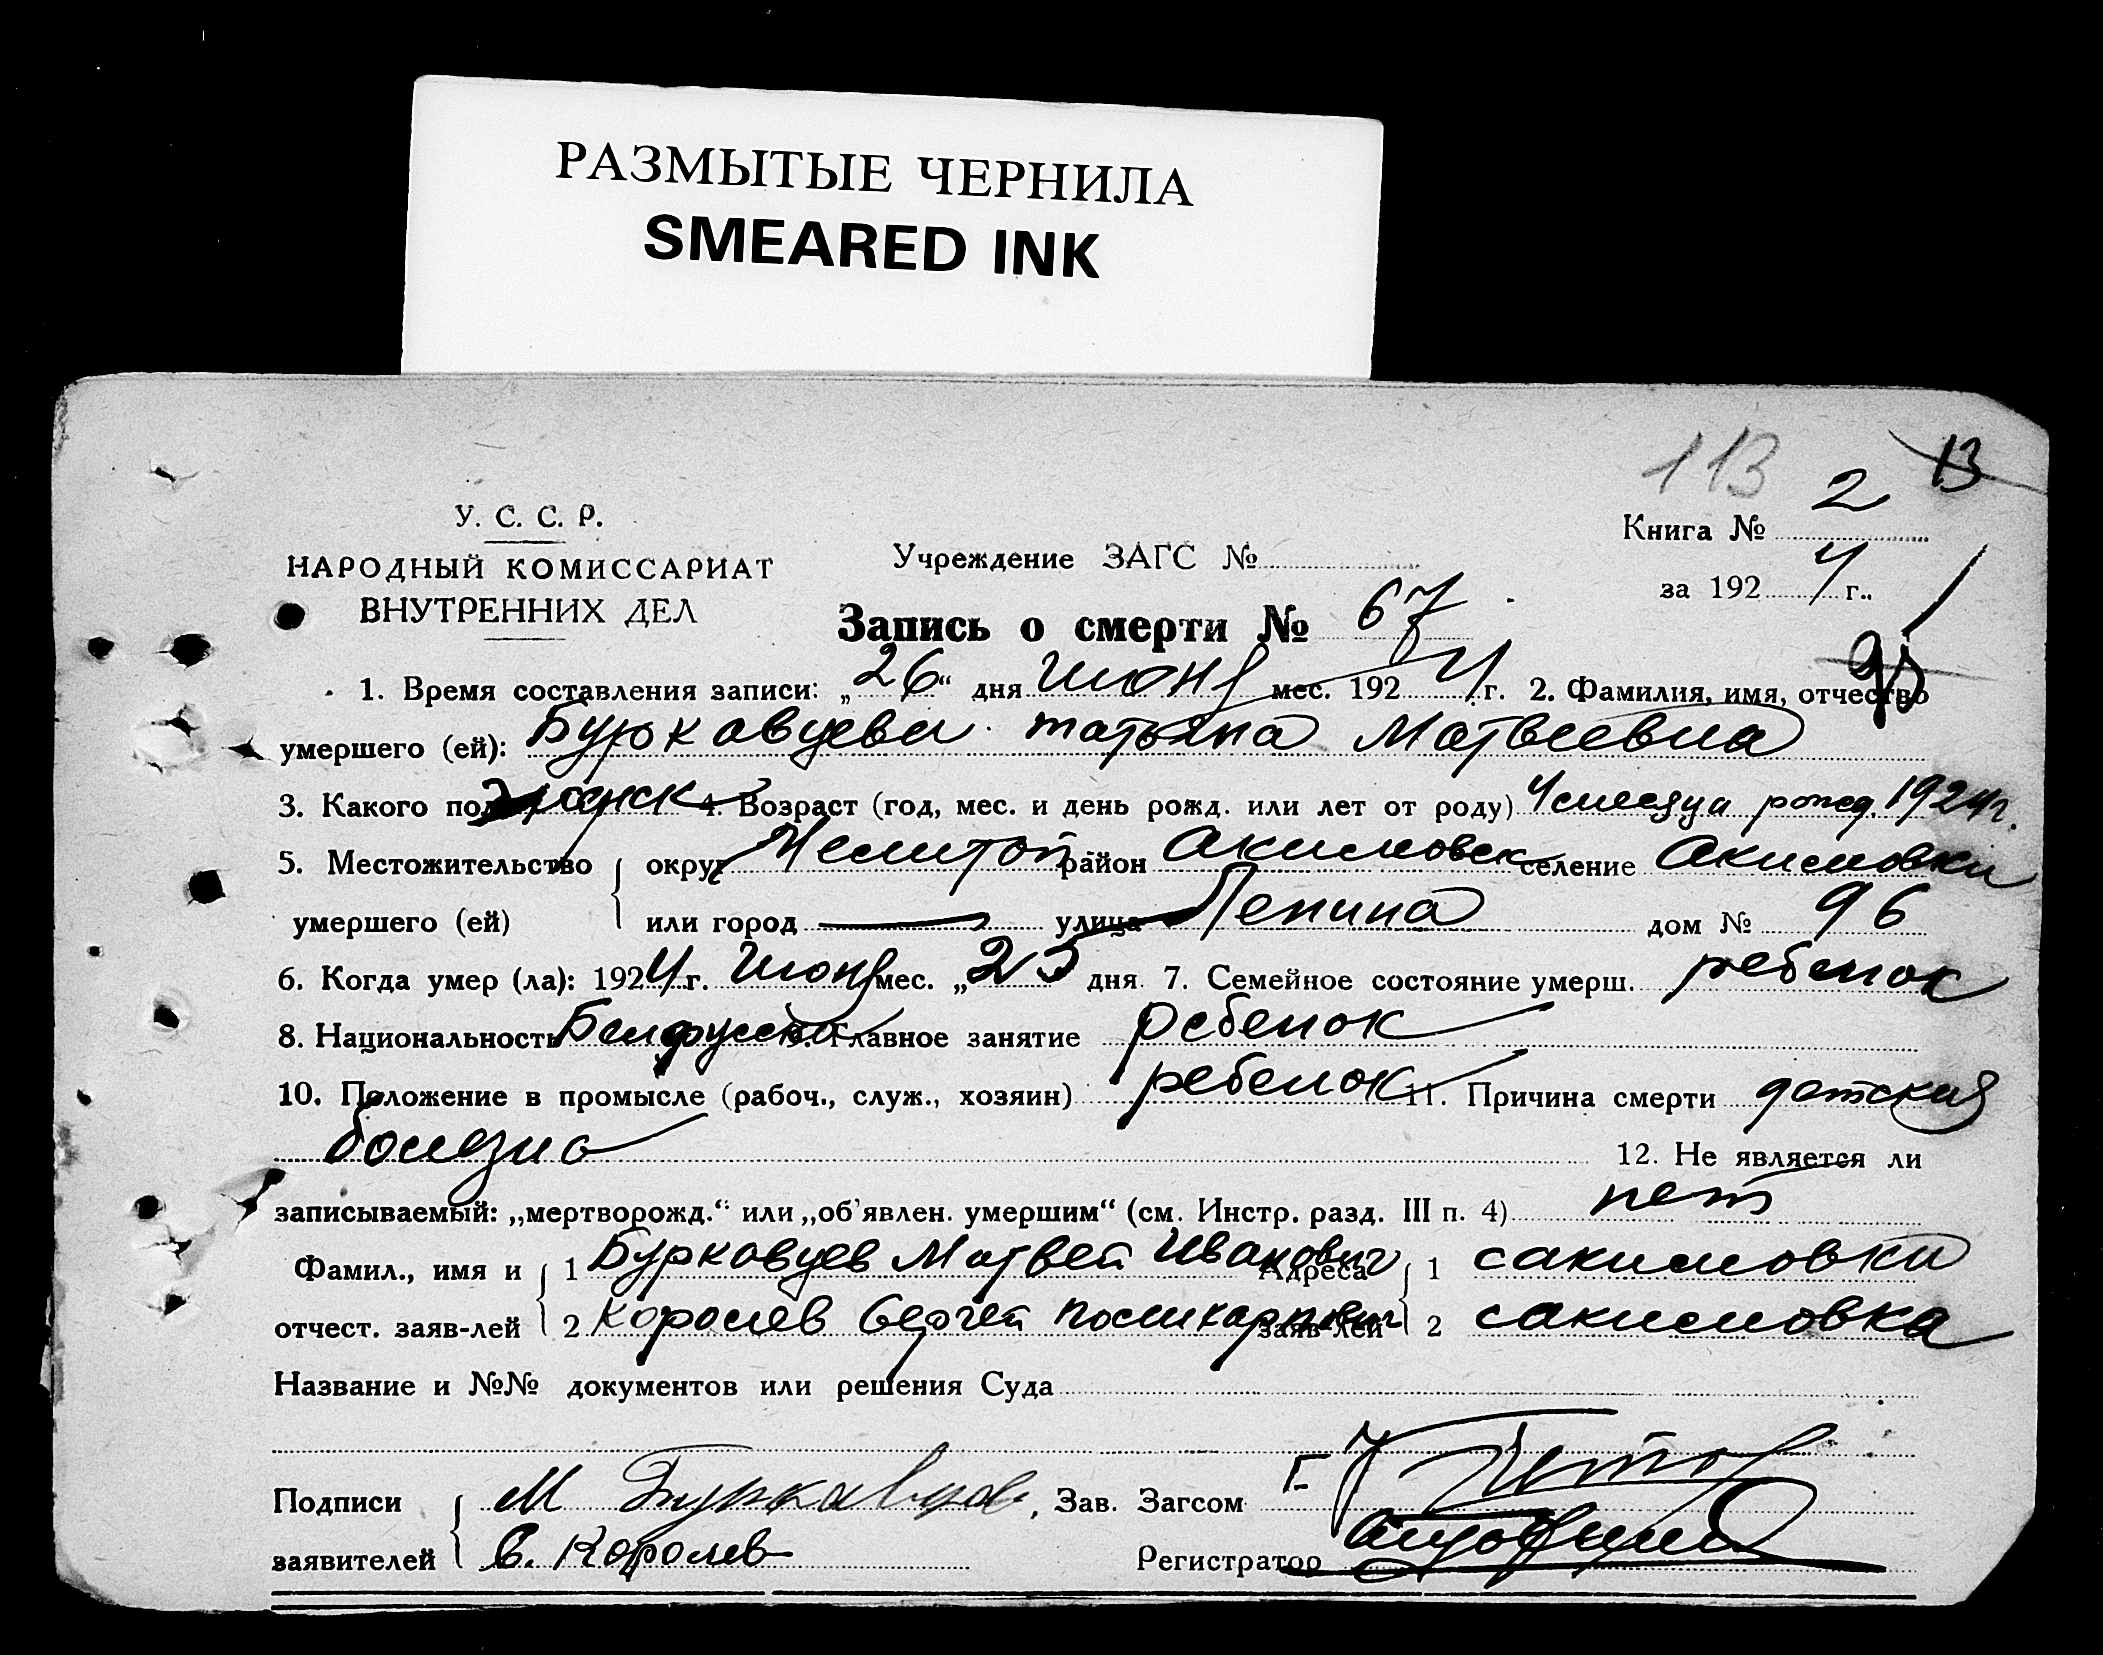 РАЗМЫТЫЕ ЧЕРНИЛА
SMEARED INK
113 13
У. С. С. Р.
НАРОДНЫЙ КОМИССАРИАТ
ВНУТРЕННИХ ДЕЛ
Учреждение ЗАГС №
Книга № 2
за 192 4 г..
Запись о смерти № 67
1. Время составления записи: „26“ дня Июня мес. 192 4 г. 2. Фамилия, имя, отчество
умершего (ей): Бурковцева Татьяна Матвеевна
3. Какого пола женск 4. Возраст (год, мес. и день рожд. или лет от роду) 4 месяца рожд. 1924 г.
5. Местожительство округ Мелитоп район Акимовск селение Акимовка
умершего (ей) или город — улица Ленина дом № 96
6. Когда умер (ла): 1924 г. Июня мес. „25 дня 7. Семейное состояние умерш. ребенок
8. Национальность Белорусска Главное занятие ребенок
10. Положение в промысле (рабоч., служ., хозяин) ребенок 11. Причина смерти детская
болезнь 12. Не является ли
записываемый: „мертворожд.“ или „об'явлен. умершим“ (см. Инстр. разд. III п. 4) нет
Фамил., имя и 1 Бурковцев Матвей Иванович Адреса 1 с акимовки
отчест. заяв-лей 2 Королев Сергей Поликарпович заяв-лей 2 с акимовка
Название и №№ документов или решения Суда
Подписи М Бурковцев, Зав. Загсом
заявителей С. Королев Регистратор